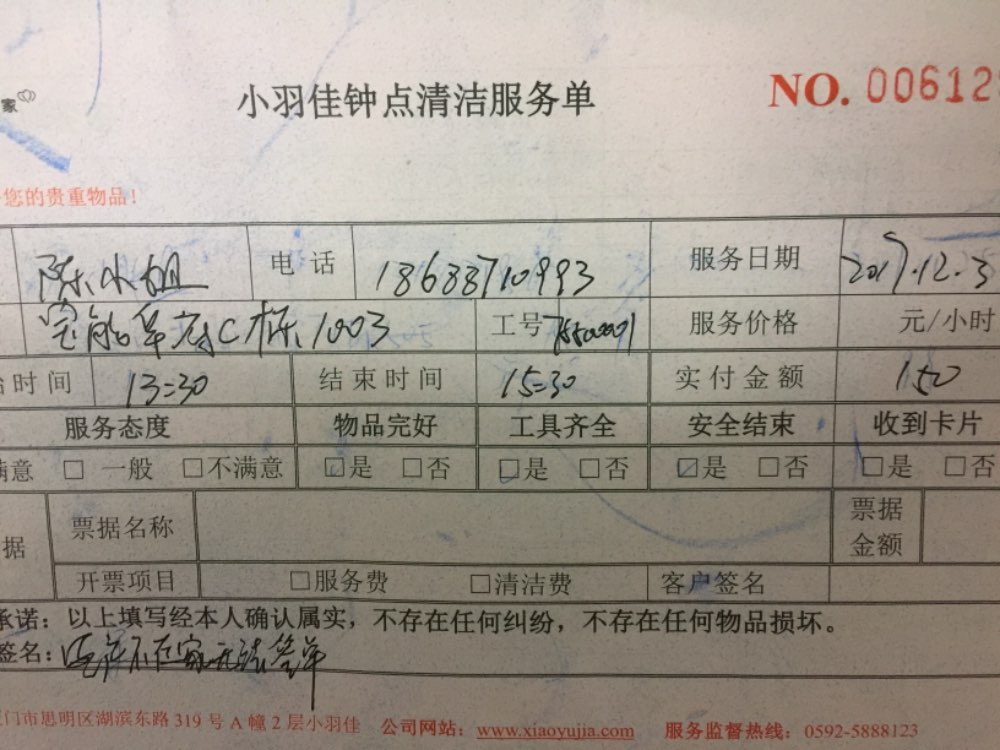 家
小羽佳钟点清洁服务单 NO. 00612
您的贵重物品！
陈小姐 电话 18688710993 服务日期 2017.12.3
C栋1003 工号 服务价格 元/小时
时间 13:30 结束时间 15:30 实付金额 150
服务态度 物品完好 工具齐全 安全结束 收到卡片
满意 □ 一般 □不满意 □是 □否 □是 □否 ☑是 □否 □是 □否
据 票据名称 票据金额
开票项目 □服务费 □清洁费 客户签名
承诺：以上填写经本人确认属实，不存在任何纠纷，不存在任何物品损坏。
签名：客户不在家无法签单
门市思明区湖滨东路 319 号 A 幢 2 层小羽佳 公司网站：www.xiaoyujia.com 服务监督热线：0592-5888123